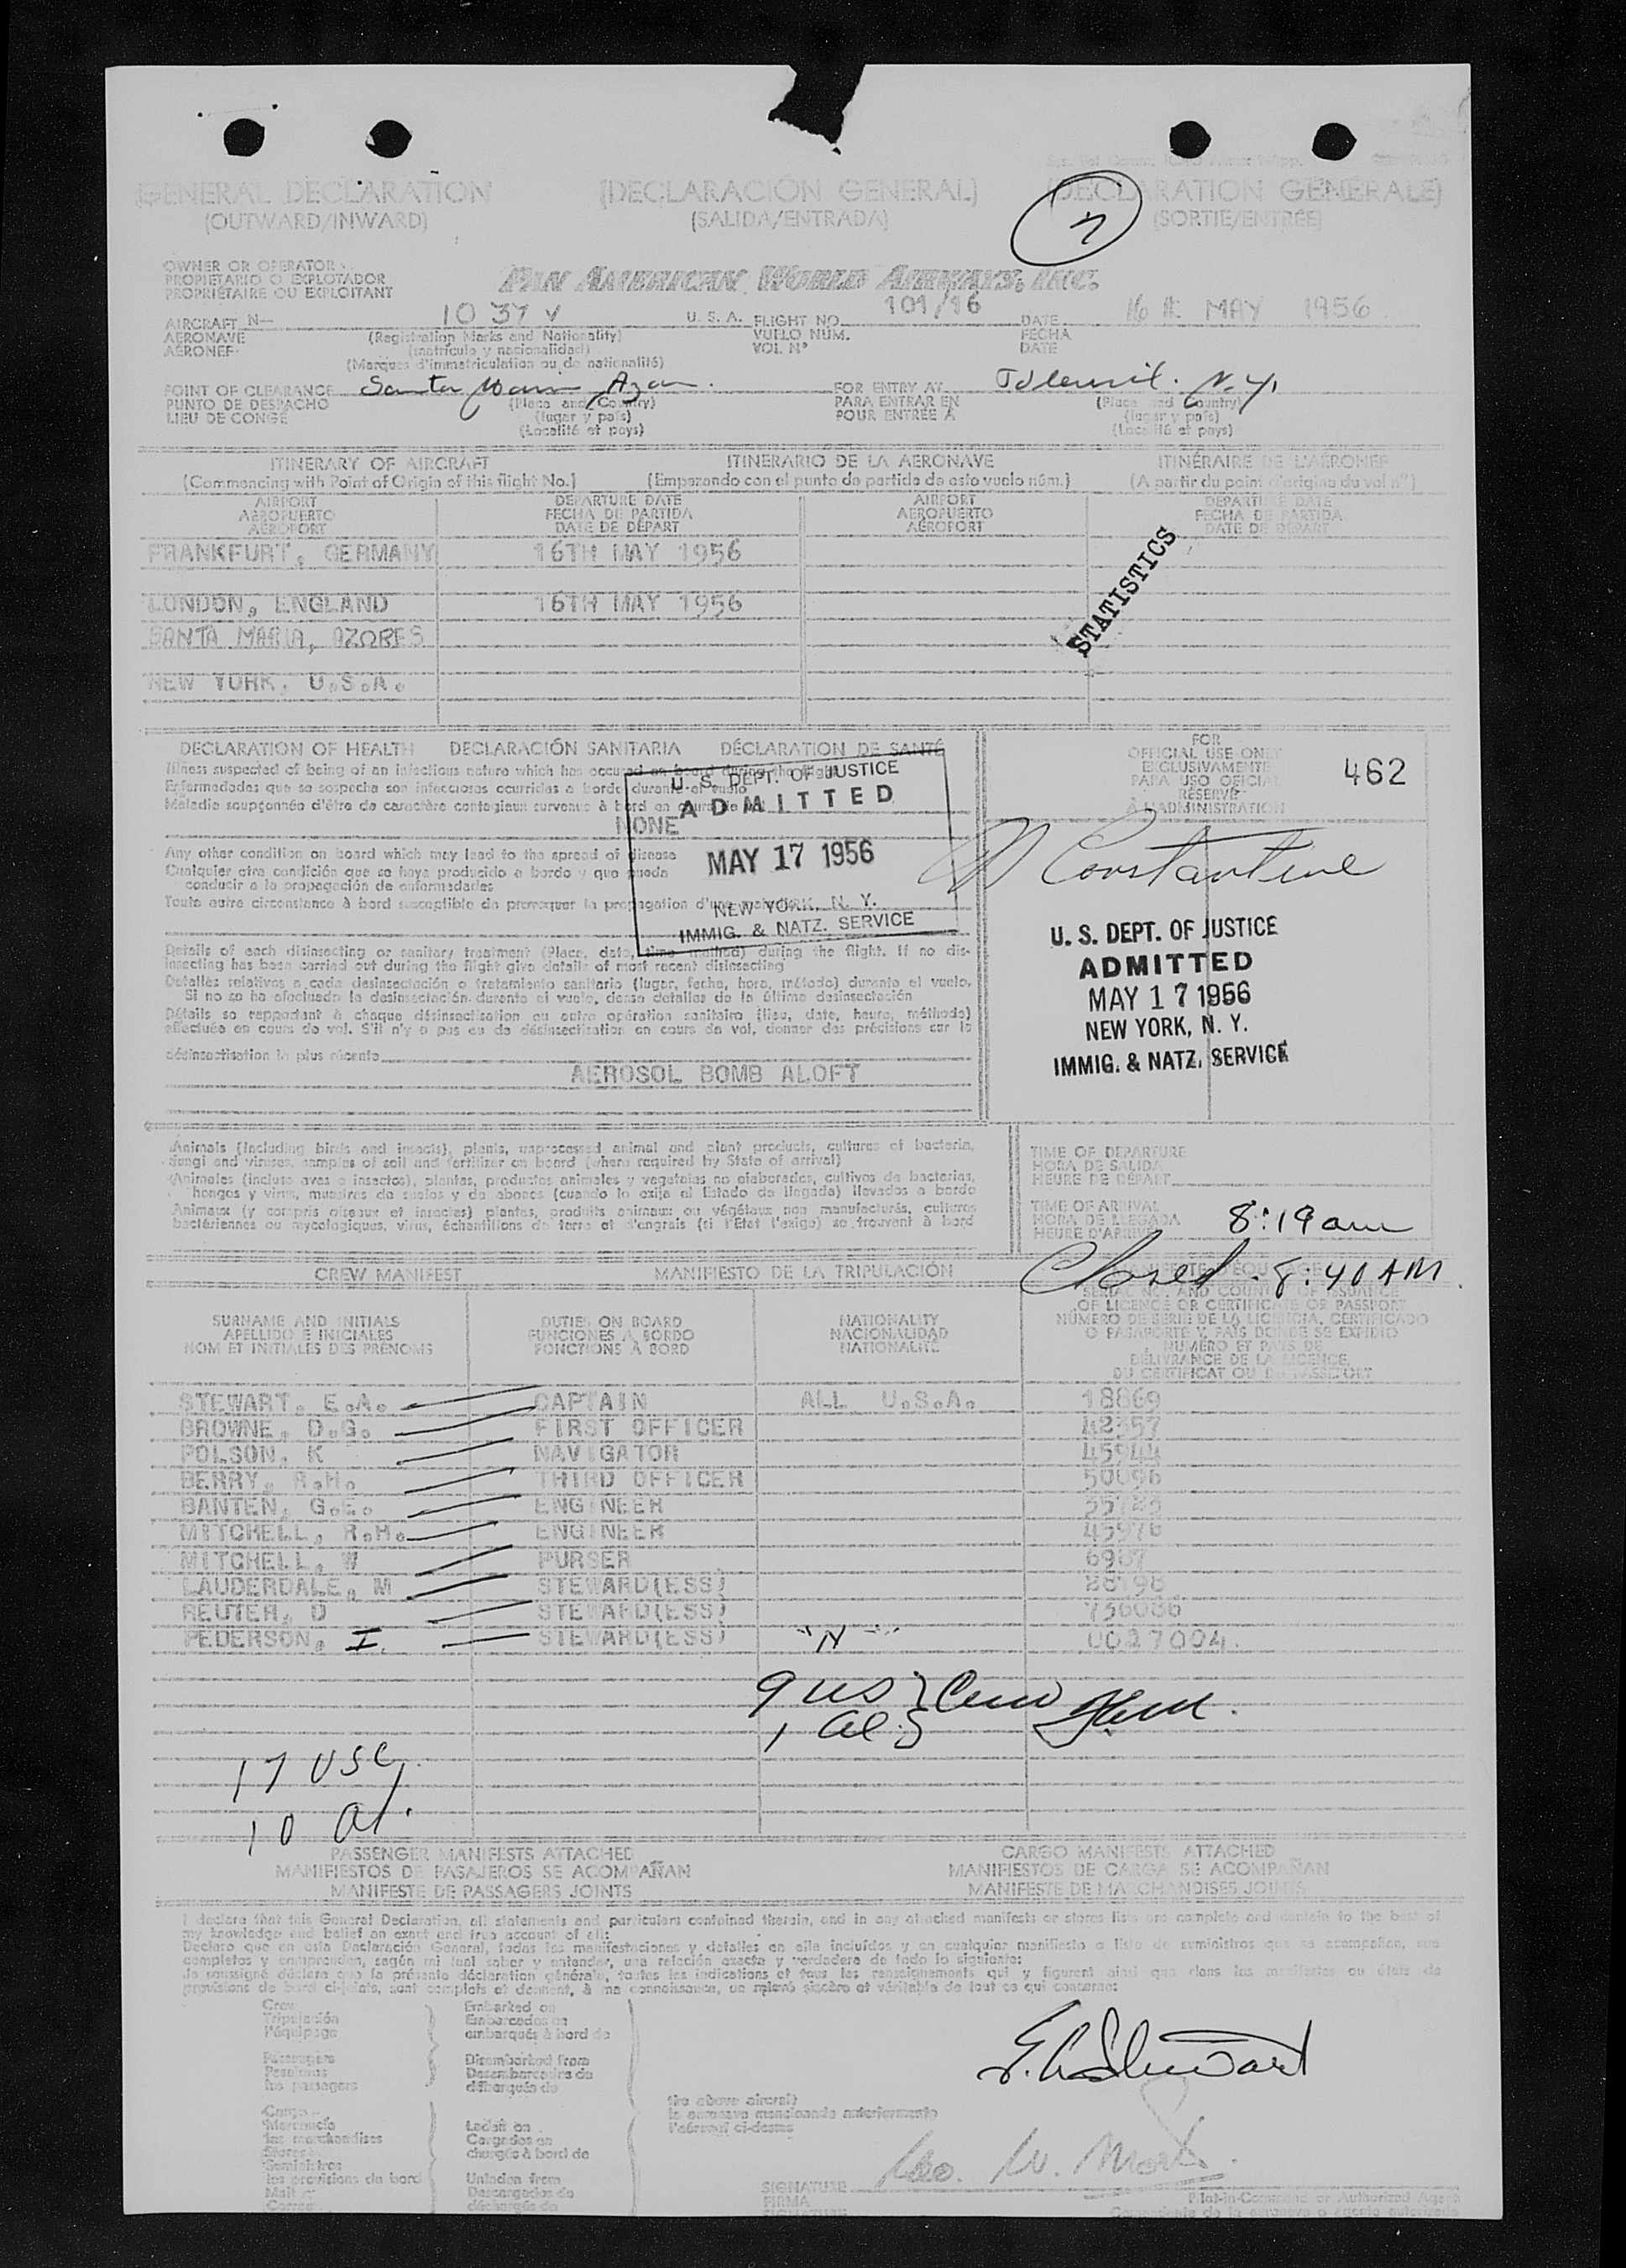 GENERAL DECLARATION (DECLARACIÓN GENERAL) (DÉCLARATION GÉNÉRALE)
(OUTWARD/INWARD) (SALIDA/ENTRADA) (SORTIE/ENTRÉE)
OWNER OR OPERATOR
PROPIETARIO O EXPLOTADOR
PROPRIÉTAIRE OU EXPLOITANT
PAN AMERICAN WORLD AIRWAYS, INC.
AIRCRAFT N— 1037 V U. S. A. FLIGHT NO. 101/16 DATE 16 MAY 1956
AERONAVE (Registration Marks and Nationality) VUELO NUM. FECHA
AÉRONEF (matrícula y nacionalidad) VOL Nº DATE
(Marques d'immatriculation ou de nationalité)
POINT OF CLEARANCE Santa Maria Azores FOR ENTRY AT Idlewild. N.Y.
PUNTO DE DESPACHO (Place and Country) PARA ENTRAR EN (Place and Country)
LIEU DE CONGÉ (lugar y país) POUR ENTRÉE À (lugar y país)
(Localité et pays) (Localité et pays)
ITINERARY OF AIRCRAFT ITINERARIO DE LA AERONAVE ITINÉRAIRE DE L'AÉRONEF
(Commencing with Point of Origin of this flight No.) (Empezando con el punto de partida de este vuelo núm.) (A partir du point d'origine du vol nº)
AIRPORT DEPARTURE DATE AIRPORT DEPARTURE DATE
AEROPUERTO FECHA DE PARTIDA AEROPUERTO FECHA DE PARTIDA
AÉROPORT DATE DE DÉPART AÉROPORT DATE DE DÉPART
FRANKFURT, GERMANY 16TH MAY 1956
STATISTICS
LONDON, ENGLAND 16TH MAY 1956
SANTA MARIA, AZORES
NEW YORK, U.S.A.
DECLARATION OF HEALTH DECLARACIÓN SANITARIA DÉCLARATION DE SANTÉ
Illness suspected of being of an infectious nature which has occured on board during the flight
Enfermedades que se sospecha son infecciosas ocurridas a bordo durante el vuelo
Maladie soupçonnée d'être de caractère contagieux survenue à bord en cours de
NONE
U. S. DEPT. OF JUSTICE
ADMITTED
MAY 17 1956
NEW YORK, N. Y.
IMMIG. & NATZ. SERVICE
Any other condition on board which may lead to the spread of disease
Cualquier otra condición que se haya producido a bordo y que pueda
conducir a la propagación de enfermedades
Toute autre circonstance à bord susceptible de provoquer la propagation d'une maladie
Details of each disinsecting or sanitary treatment (Place, date, time method) during the flight. If no dis-
insecting has been carried out during the flight give details of most recent disinsecting
Detalles relativos a cada desinsectación o tratamiento sanitario (lugar, fecha, hora, método) durante el vuelo.
Si no se ha efectuado la desinsectación durante el vuelo, dense detalles de la última desinsectación
Détails se rapportant à chaque désinsectisation ou autre opération sanitaire (lieu, date, heure, méthode)
effectuée en cours de vol. S'il n'y a pas eu de désinsectisation en cours de vol, donner des précisions sur la
désinsectisation la plus récente
AEROSOL BOMB ALOFT
FOR
OFFICIAL USE ONLY
EXCLUSIVAMENTE
PARA USO OFICIAL
RÉSERVÉ
À L'ADMINISTRATION
462
Constantine
U. S. DEPT. OF JUSTICE
ADMITTED
MAY 17 1956
NEW YORK, N. Y.
IMMIG. & NATZ. SERVICE
Animals (including birds and insects), plants, unprocessed animal and plant products, cultures of bacteria,
fungi and viruses, samples of soil and fertilizer on board (where required by State of arrival)
Animales (incluso aves e insectos), plantas, productos animales y vegetales no elaborados, cultivos de bacterias,
hongos y virus, muestras de suelos y de abonos (cuando lo exija el Estado de llegada) llevados a bordo
Animaux (y compris oiseaux et insectes) plantes, produits animaux ou végétaux non manufacturés, cultures
bactériennes ou mycologiques, virus, échantillons de terre et d'engrais (si l'État l'exige) se trouvant à bord
TIME OF DEPARTURE
HORA DE SALIDA
HEURE DE DÉPART
TIME OF ARRIVAL
HORA DE LLEGADA 8:19 am
HEURE D'ARRIVÉE
Closed. 8:40 AM.
CREW MANIFEST MANIFIESTO DE LA TRIPULACIÓN
SURNAME AND INITIALS DUTIES ON BOARD NATIONALITY SERIAL NO. AND COUNTRY OF ISSUANCE
APELLIDO E INICIALES FUNCIONES A BORDO NACIONALIDAD OF LICENCE OR CERTIFICATE OR PASSPORT
NOM ET INITIALES DES PRÉNOMS FONCTIONS À BORD NATIONALITÉ NÚMERO DE SERIE DE LA LICENCIA, CERTIFICADO
O PASAPORTE Y PAÍS DONDE SE EXPIDIÓ
NUMÉRO ET PAYS DE
DÉLIVRANCE DE LA LICENCE,
DU CERTIFICAT OU DU PASSEPORT
STEWART, E.A. CAPTAIN ALL U.S.A. 18869
BROWNE, D.G. FIRST OFFICER 42357
POLSON, K NAVIGATOR 45944
BERRY, R.H. THIRD OFFICER 50096
BANTEN, G.E. ENGINEER
MITCHELL, R.H. ENGINEER 45976
MITCHELL, W PURSER 6907
LAUDERDALE, M STEWARD(ESS) 28198
REUTER, D STEWARD(ESS) 736086
PEDERSON, I. STEWARD(ESS) "N" 0027004.
9 US } Crew
1 Al. }
17 USC
10 Al.
PASSENGER MANIFESTS ATTACHED CARGO MANIFESTS ATTACHED
MANIFIESTOS DE PASAJEROS SE ACOMPAÑAN MANIFIESTOS DE CARGA SE ACOMPAÑAN
MANIFESTE DE PASSAGERS JOINTS MANIFESTE DE MARCHANDISES JOINTS
I declare that this General Declaration, all statements and particulars contained therein, and in any attached manifests or stores lists are complete and contain to the best of
my knowledge and belief an exact and true account of all:
Declaro que en esta Declaración General, todas las manifestaciones y detalles en ella incluídos y en cualquier manifiesto o lista de suministros que se acompañan, son
completos y comprenden, según mi leal saber y entender, una relación exacta y verdadera de todo lo siguiente:
Je soussigné déclare que la présente déclaration générale, toutes les indications et tous les renseignements qui y figurent ainsi que dans les manifestes ou états de
provisions de bord ci-joints, sont complets et donnent, à ma connaissance, un relevé sincère et véritable de tout ce qui concerne:
Crew Embarked on
Tripulación Embarcados en
l'équipage embarqués à bord de
Passengers Disembarked from
Pasajeros Desembarcados de
les passagers débarqués de
Cargo the above aircraft
Mercancía Laden on la aeronave mencionada anteriormente
les marchandises Cargados en l'aéronef ci-dessus
Stores chargés à bord de
Suministros
les provisions de bord Unladen from
Mail Descargados de
Correo déchargés de
E. A. Stewart
SIGNATURE Geo. W.
FIRMA Pilot-in-Command or Authorized Agent
SIGNATURE Comandante de la aeronave o agente autorizado